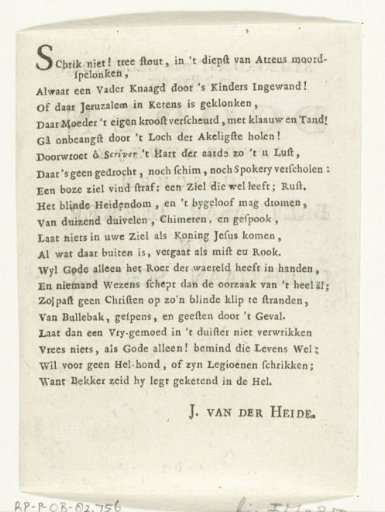 Schrik niet! tree ſtout, in 't diepſt van Atreus moord-
ſpelonken,
Alwaar een Vader Knaagd door 's Kinders Ingewand!
Of daar Jeruzalem in Ketens is geklonken,
Daar Moeder 't eigen krooſt verſcheurd, met klaauw en Tand!
Gâ onbeangſt door 't Loch der Akeligſte holen!
Doorwroet ô Scriver 't Hart der aarde zo 't u Luſt,
Daar 's geen gedrocht, noch ſchim, noch Spokery verſcholen:
Een boze ziel vind ſtraf: een Ziel die wel leeft; Ruſt,
Het blinde Heidendom, en 't bygeloof mag dromen,
Van duizend duivelen, Chimeren, en geſpook,
Laat niets in uwe Ziel als Koning Jeſus komen,
Al wat daar buiten is, vergaat als miſt eu Rook.
Wyl Gode alleen het Roer der waereld heeft in handen,
En niemand Wezens ſchept dan de oorzaak van 't heel al;
Zo paſt geen Chriſten op zo'n blinde klip te ſtranden,
Van Bullebak, geſpens, en geeſten door 't Geval.
Laat dan een Vry-gemoed in 't duiſter niet verwrikken
Vrees niets, als Gode alleen! bemind die Levens Wel:
Wil voor geen Hel-hond, of zyn Legioenen ſchrikken;
Want Bekker zeid hy legt geketend in de Hel.
J. VAN DER HEIDE.
RP-P-OB-82.756